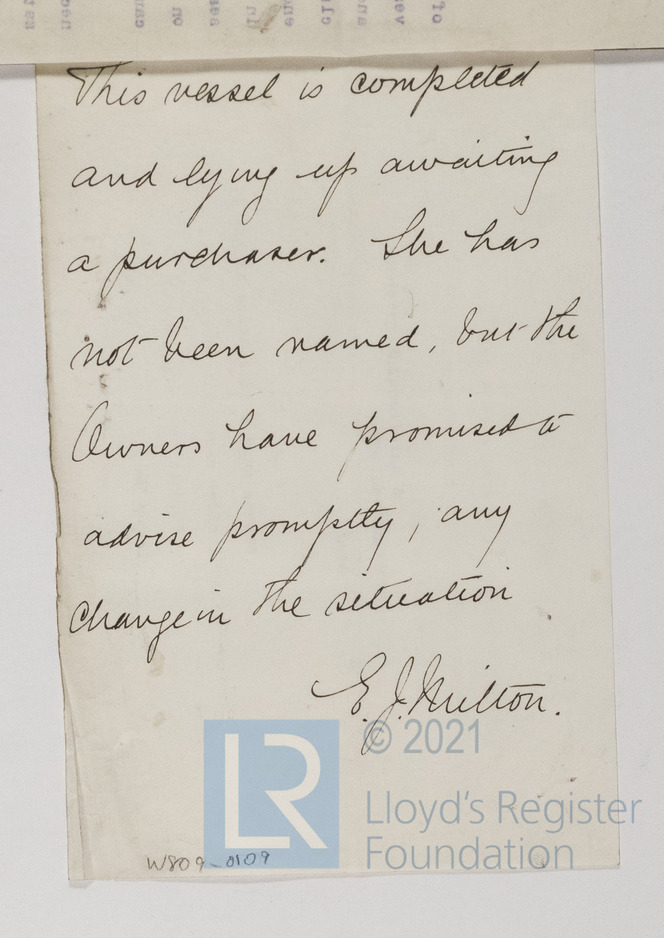 This vessel is completed
and lying up awaiting
a purchaser. She has
not been named, but the
Owners have promised to
advise promptly, any
change in the situation
E. J. Milton.
© 2021
LR
Lloyd's Register
Foundation
W809-0109